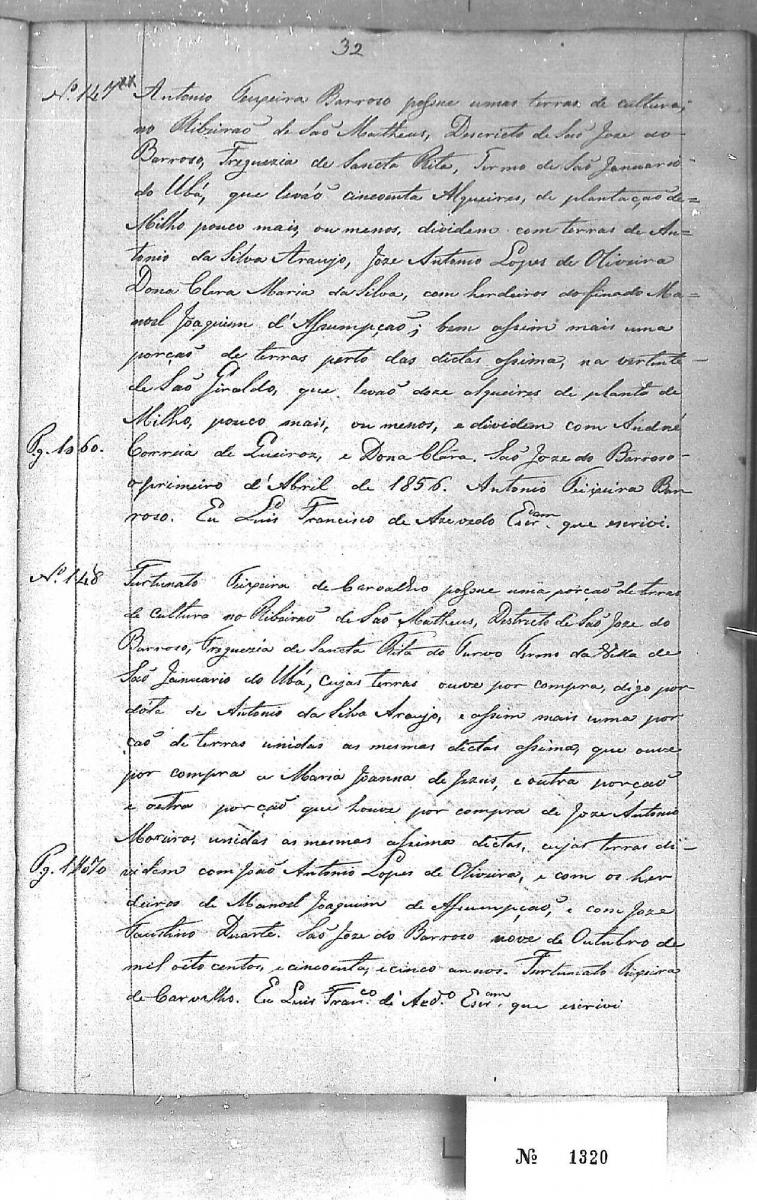 32
Nº 147 Antonio Teixeira Barroso possue umas terras de cultura,
no Ribeirão de São Matheus, Descricto de São Joze do
Barroso, Freguezia de Sancta Rita, Termo de São Januario
do Ubá, que levão cincoenta Alqueires, de plantação de
Milho pouco mais, ou menos, dividem com terras de An=
tonio da Silva Araujo, Joze Antonio Lopes de Oliveira
Dona Clara Maria da Silva, com herdeiros do finado Ma=
noel Joaquim d'Assumpção; bem assim mais uma
porção de terras perto das dictas assima, na vertente
de São Giraldo, que levão doze alqueires de planta de
Milho, pouco mais, ou menos, e dividem com André
Pg. 1060. Correia de Queiroz, e Dona Clara. São Joze do Barroso
o primeiro d'Abril de 1856. Antonio Teixeira Bar
roso. Eu Luis Francisco de Azevedo Escram. que escrivi.
Nº 148 Furtunato Teixeira de Carvalho possue uma porção de terras
de cultura no Ribeirão de São Matheus, Districto de São Joze do
Barroso, Freguezia de Sancta Rita do Turvo Termo da Villa de
São Januario do Ubá, cujas terras ouve por compra, digo por
dote de Antonio da Silva Araujo, e assim mais uma por
ção de terras unidas as mesmas dictas assima, que ouve
por compra a Maria Joanna de Jezus, e outra porção
e outra porção que houve por compra de Joze Antonio
Moreira, unidas as mesmas assima dictas, cujas terras di=
Pg. 1070 videm com João Antonio Lopes de Oliveira, e com os her
deiros de Manoel Joaquim de Assumpção, e com Joze
Faustino Duarte. São Joze do Barroso nove de Outubro de
mil oito centos, e cincoenta, e cinco annos. Furtunato Teixeira
de Carvalho. Eu Luis Franco. d'Azdo. Escram. que escrivi
Nº 1320